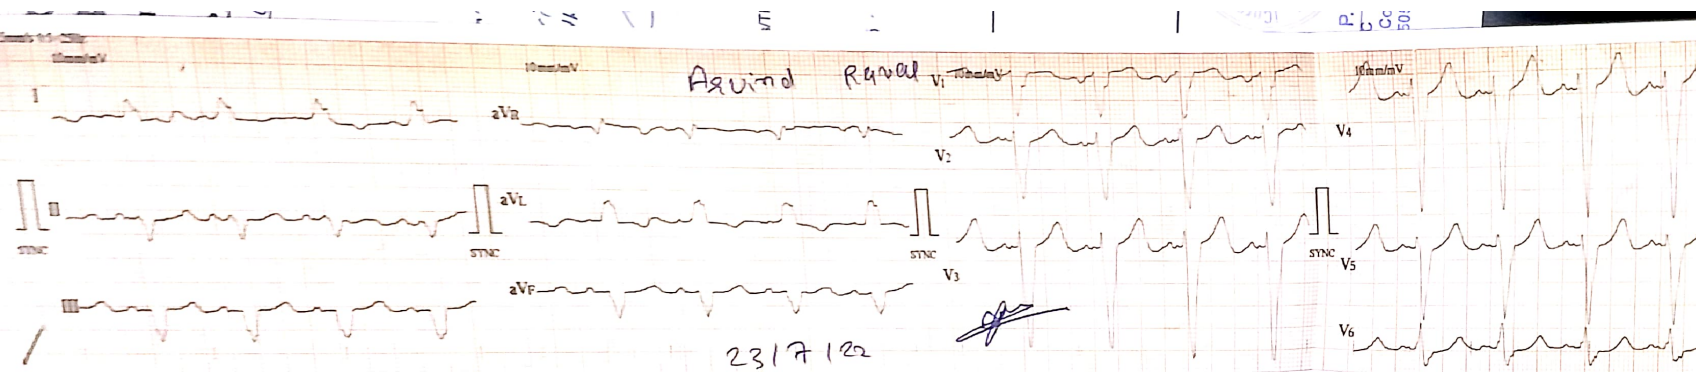 10mm/mV
10mm/mV
Arvind Raval
10mm/mV
10mm/mV
I
aVR
V1
V2
V4
II
aVL
SYNC
SYNC
SYNC
SYNC
V3
V5
III
aVF
V6
23/7/22